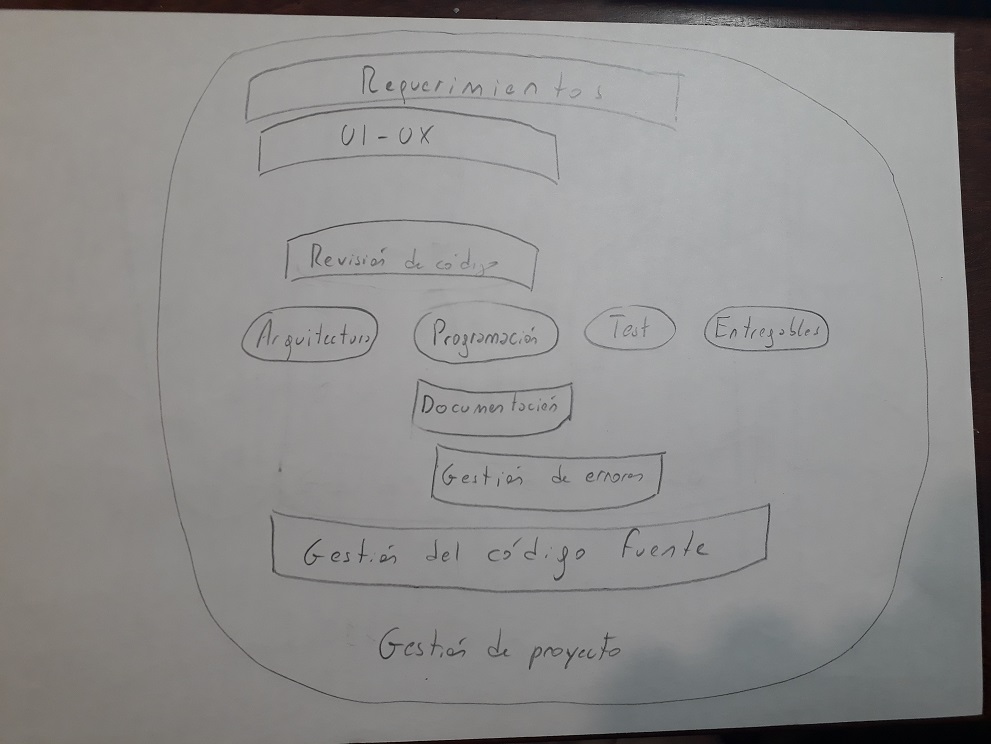 Requerimientos
UI-UX
Revisión de código
Arquitectura
Programación
Test
Entregables
Documentación
Gestión de errores
Gestión del código fuente
Gestión de proyecto